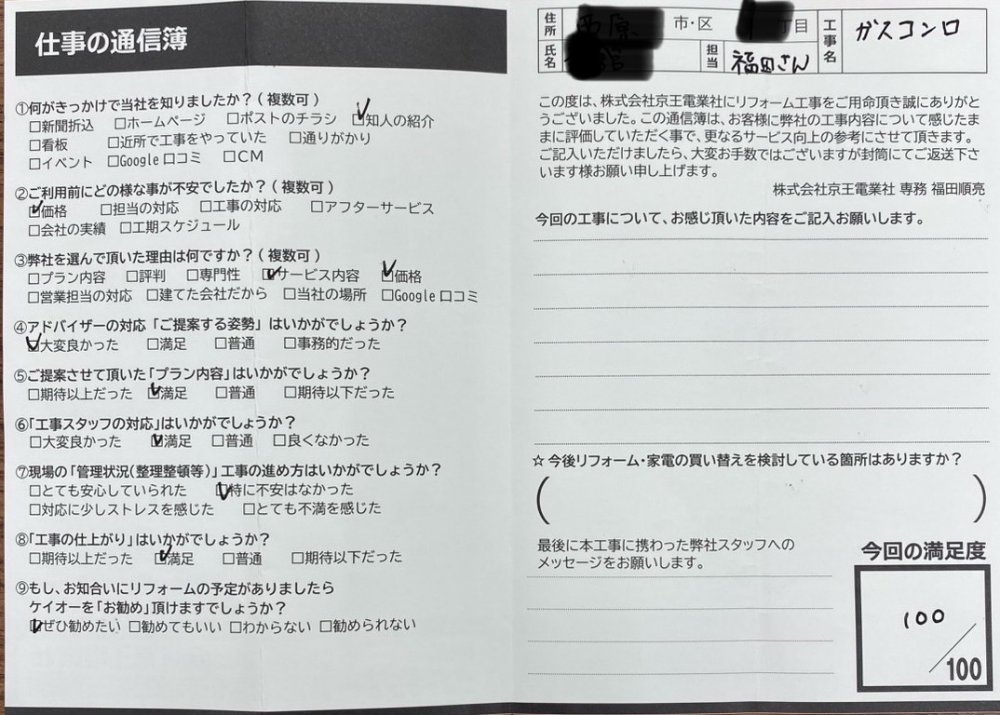 仕事の通信簿
①何がきっかけで当社を知りましたか？（複数可）
□新聞折込 □ホームページ □ポストのチラシ ☑知人の紹介
□看板 □近所で工事をやっていた □通りがかり
□イベント □Google口コミ □CM
②ご利用前にどの様な事が不安でしたか？（複数可）
☑価格 □担当の対応 □工事の対応 □アフターサービス
□会社の実績 □工期スケジュール
③弊社を選んで頂いた理由は何ですか？（複数可）
□プラン内容 □評判 □専門性 ☑サービス内容 ☑価格
□営業担当の対応 □建てた会社だから □当社の場所 □Google口コミ
④アドバイザーの対応「ご提案する姿勢」はいかがでしょうか？
☑大変良かった □満足 □普通 □事務的だった
⑤ご提案させて頂いた「プラン内容」はいかがでしょうか？
□期待以上だった ☑満足 □普通 □期待以下だった
⑥「工事スタッフの対応」はいかがでしょうか？
□大変良かった ☑満足 □普通 □良くなかった
⑦現場の「管理状況(整理整頓等)」工事の進め方はいかがでしょうか？
□とても安心していられた ☑特に不安はなかった
□対応に少しストレスを感じた □とても不満を感じた
⑧「工事の仕上がり」はいかがでしょうか？
□期待以上だった ☑満足 □普通 □期待以下だった
⑨もし、お知合いにリフォームの予定がありましたら
ケイオーを「お勧め」頂けますでしょうか？
☑ぜひ勧めたい □勧めてもいい □わからない □勧められない
住所 市・区 丁目
氏名 担当 福田さん
工事名 ガスコンロ
この度は、株式会社京王電業社にリフォーム工事をご用命頂き誠にありがと
うございました。この通信簿は、お客様に弊社の工事内容について感じたま
まに評価していただく事で、更なるサービス向上の参考にさせて頂きます。
ご記入いただけましたら、大変お手数ではございますが封筒にてご返送下さ
います様お願い申し上げます。
株式会社京王電業社 専務 福田順亮
今回の工事について、お感じ頂いた内容をご記入お願いします。
☆今後リフォーム・家電の買い替えを検討している箇所はありますか？
( )
最後に本工事に携わった弊社スタッフへの
メッセージをお願いします。
今回の満足度
100
/100